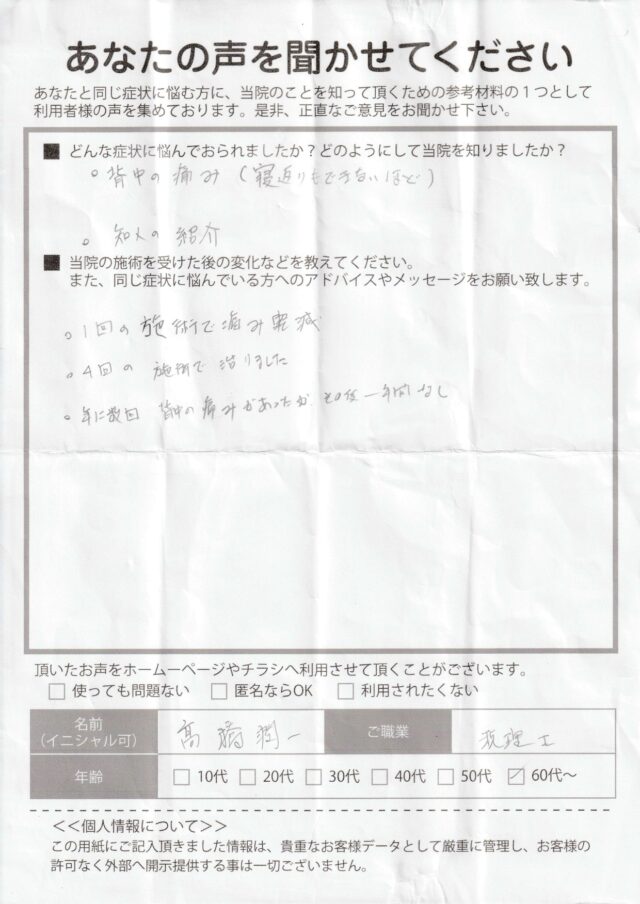 あなたの声を聞かせてください
あなたと同じ症状に悩む方に、当院のことを知って頂くための参考材料の1つとして
利用者様の声を集めております。是非、正直なご意見をお聞かせ下さい。
■ どんな症状に悩んでおられましたか？どのようにして当院を知りましたか？
○ 背中の痛み（寝返りもできないほど）
○ 知人の紹介
■ 当院の施術を受けた後の変化などを教えてください。
また、同じ症状に悩んでいる方へのアドバイスやメッセージをお願い致します。
○ 1回の施術で痛み軽減
○ 4回の施術で治りました
○ 年に数回 背中の痛みがあったが、その後一年間なし
頂いたお声をホームーページやチラシへ利用させて頂くことがございます。
□ 使っても問題ない □ 匿名ならOK □ 利用されたくない
名前
（イニシャル可） 髙橋潤一 ご職業 税理士
年齢 □ 10代 □ 20代 □ 30代 □ 40代 □ 50代 ☑ 60代〜
<<個人情報について>>
この用紙にご記入頂きました情報は、貴重なお客様データとして厳重に管理し、お客様の
許可なく外部へ開示提供する事は一切ございません。